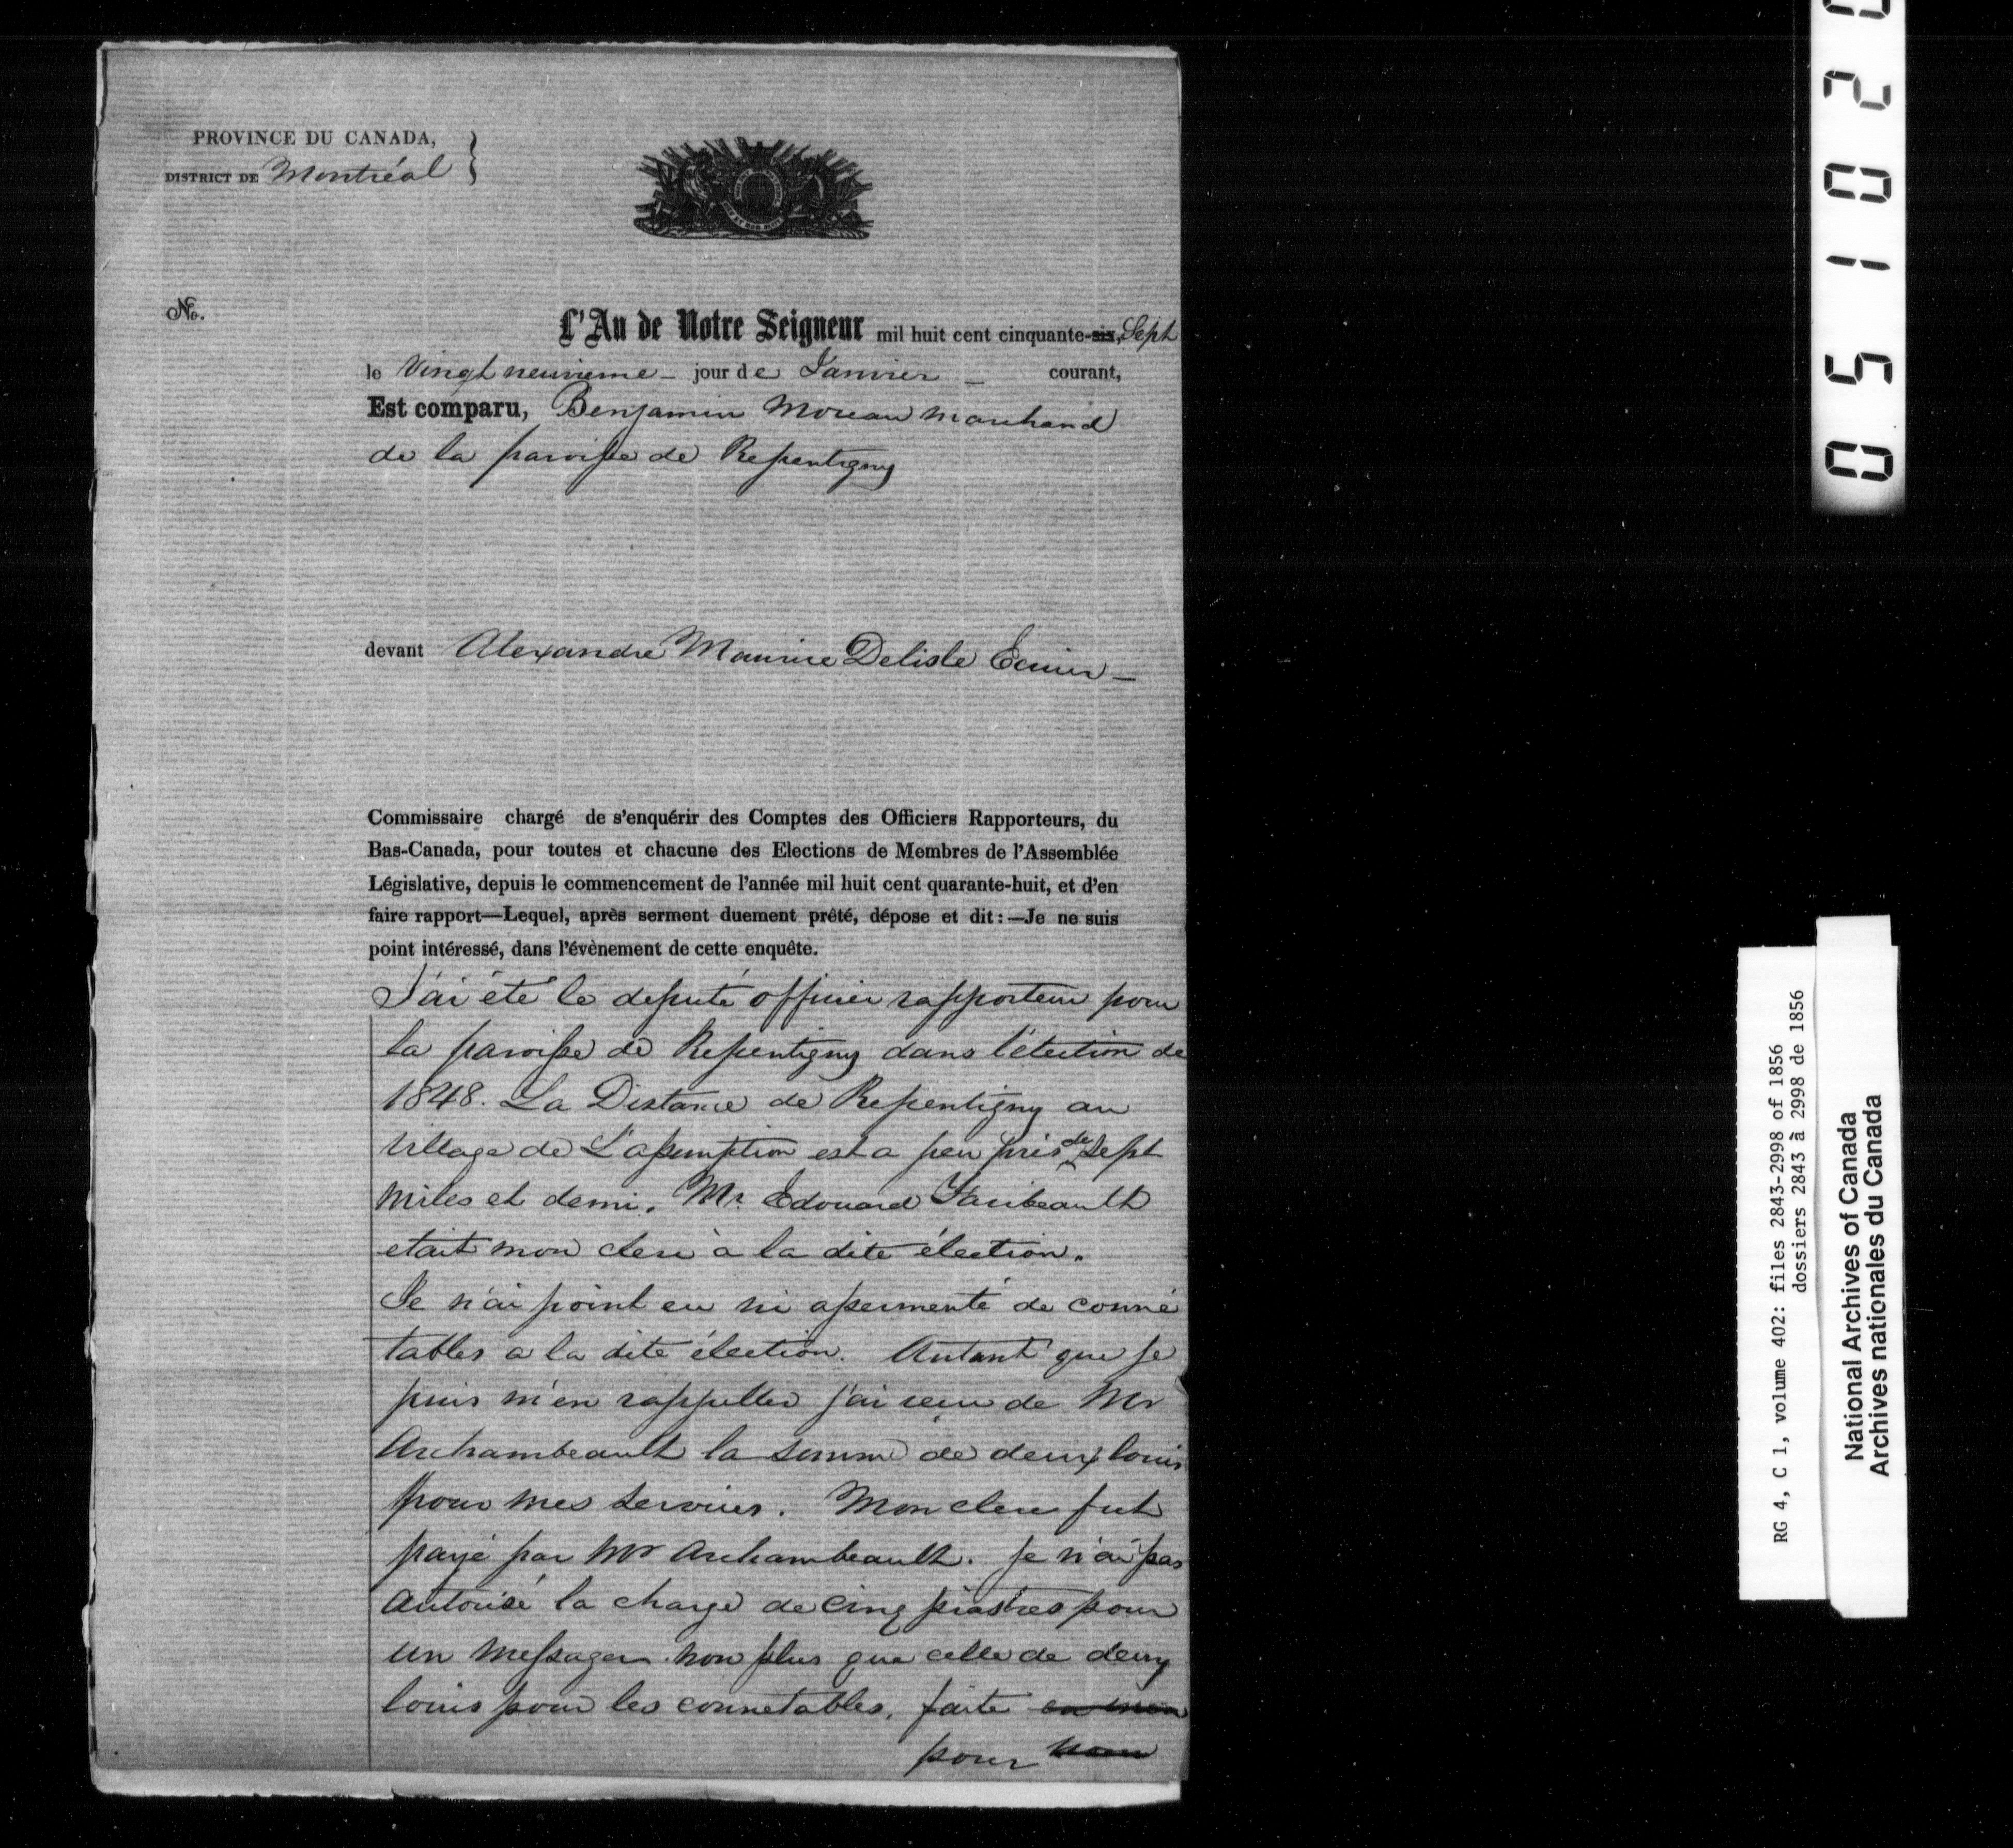 PROVINCE DU CANADA,
DISTRICT DE Montréal
No.
L'An de Notre Seigneur mil huit cent cinquante-six, Sept
le Vingt neuvieme - jour de Janvier - courant,
Est comparu, Benjamin Moreau Marchand
de la paroisse de Repentigny
devant Alexandre Maurice Delisle Ecuier -
Commissaire chargé de s'enquérir des Comptes des Officiers Rapporteurs, du
Bas-Canada, pour toutes et chacune des Elections de Membres de l'Assemblée
Législative, depuis le commencement de l'année mil huit cent quarante-huit, et d'en
faire rapport—Lequel, après serment duement prêté, dépose et dit:—Je ne suis
point intéressé, dans l'évènement de cette enquête.
J'ai été le député officier rapporteur pour
la paroisse de Repentigny dans l'élection de
1848. La Distance de Repentigny au
village de L'assumption est a peu près de Sept
miles et demi. Mr. Edouard Faribeault
etait mon clerc à la dite élection.
Je n'ai point eu ni assermenté de conné
tables a la dite élection. Autant que je
puis m'en rappeller j'ai recu de Mr
Archambeault la somme de deux louis
pour mes services. Mon clerc fut
payé par Mr Archambeault. Je n'ai pas
Autorisé la charge de Cinq piastres pour
un messager non plus que celle de deux
louis pour les connetables, faite en mon
pour nom
05102
RG 4, C 1, volume 402: files 2843-2998 of 1856
dossiers 2843 à 2998 de 1856
National Archives of Canada
Archives nationales du Canada